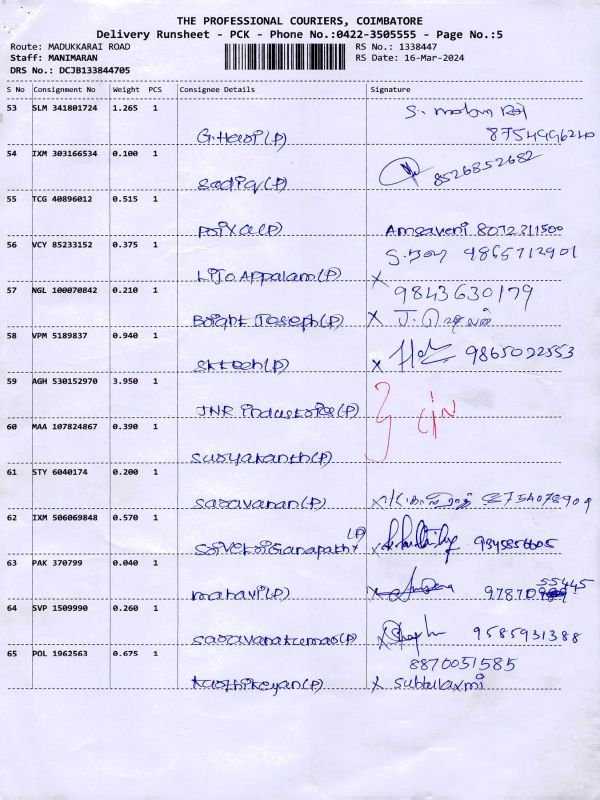 THE PROFESSIONAL COURIERS, COIMBATORE
Delivery Runsheet - PCK - Phone No.:0422-3505555 - Page No.:5
Route: MADUKKARAI ROAD RS No.: 1338447
Staff: MANIMARAN RS Date: 16-Mar-2024
DRS No.: DCJB133844705
S No Consignment No Weight PCS Consignee Details Signature
53 SLM 341801724 1.265 1
(P) 8754996240
54 IXM 303166534 0.100 1 8526852682
Sadiq(P)
55 TCG 40896012 0.515 1
Amsaveni 8072311500
56 VCY 85233152 0.375 1 9865712901
Lijo Appalam(P) x
57 NGL 100070842 0.210 1 9843630179
Bright Joseph(P) x J.
58 VPM 5189837 0.940 1
SK tech(P) x 9865022553
59 AGH 530152970 3.950 1
JNR industries(P)
60 MAA 107824867 0.390 1
Suryakanth(P)
61 STY 6040174 0.200 1
Saravanan(P) x
62 IXM 506069848 0.570 1 (P)
x 9345856605
63 PAK 370799 0.040 1 55445
(P) x 97870
64 SVP 1509990 0.260 1
Saravanakumar(P) x 9585931388
65 POL 1962563 0.675 1 8870051585
Karthikeyan(P) x Subbulaxmi